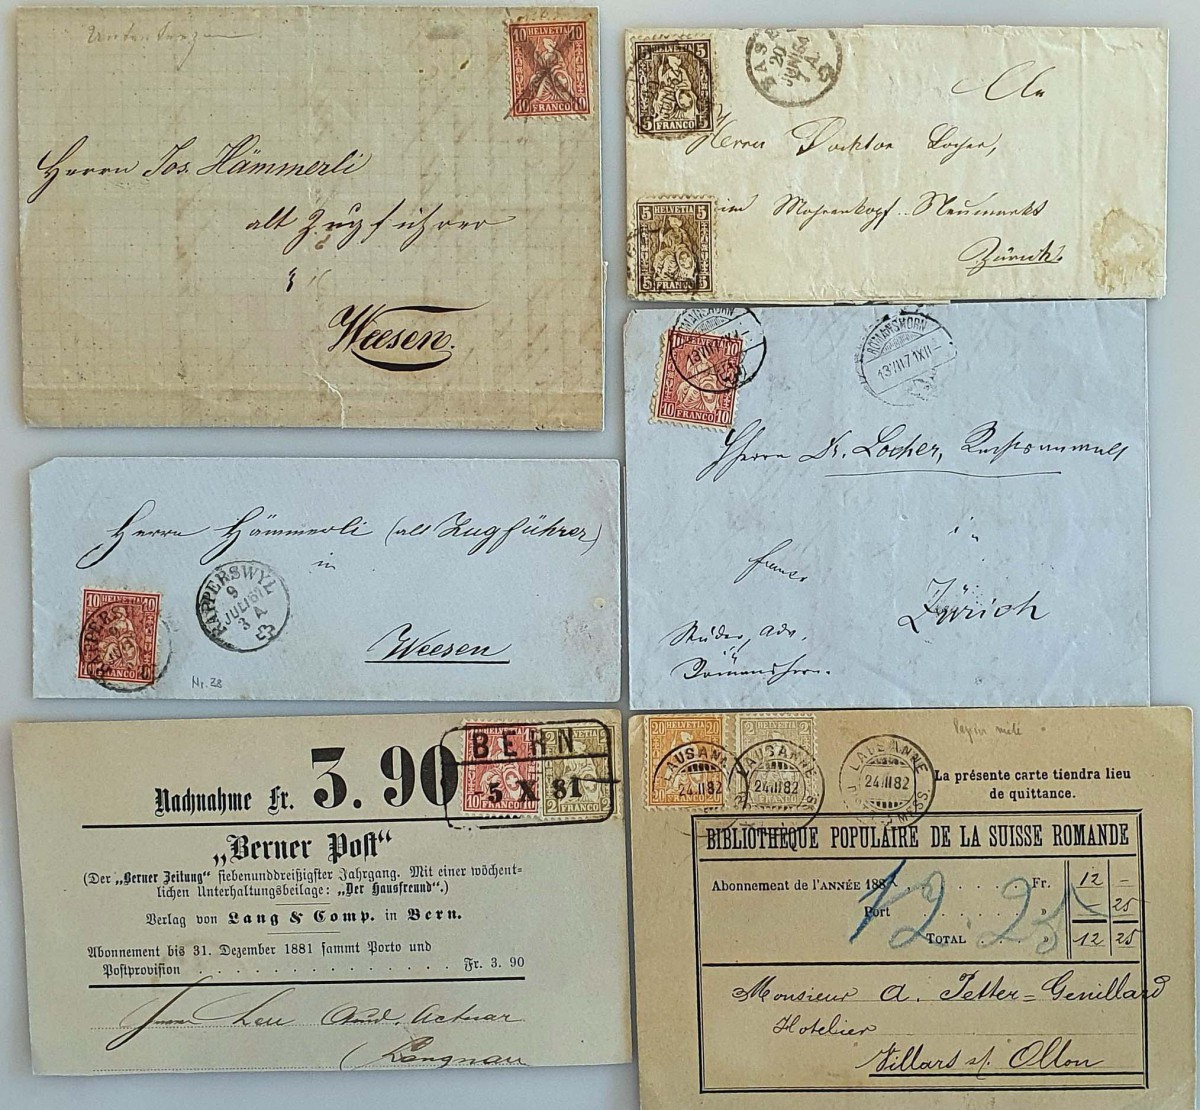 10 HELVETIA 10
10 FRANCO 10
Herrn Jos. Hämmerli
alt Zugführer
Weesen.
5 HELVETIA 5
5 FRANCO 5
BASEL
20
JUNI 64
An
Herrn Docktor Locher,
im Mohrenkopf Neumarkt
Zürich
5 HELVETIA 5
5 FRANCO 5
10 HELVETIA 10
10 FRANCO 10
RAPPERSWYL
9
JULI 67
3 A
Herrn Hämmerli (alt Zugführer)
in
Weesen
Nr. 28
10
10 FRANCO 10
ROMANSHORN
13 VII 71 XII
Herrn Dr. Locher, Rechtsanwalt
in
franco
Zürich
Studer, Adv.
Romanshorn.
Nachnahme Fr. 3.90
BERN
-5 X 81
FRANCO
2 FRANCO 2
„Berner Post“
(Der „Berner Zeitung“ siebenunddreißigster Jahrgang. Mit einer wöchent-
lichen Unterhaltungsbeilage: „Der Hausfreund“.)
Verlag von Lang & Comp. in Bern.
Abonnement bis 31. Dezember 1881 sammt Porto und
Postprovision . . . . . . . . . . . . . . Fr. 3. 90
Herrn Leu Amtsactuar
Langnau
20 HELVETIA 20
20 FRANCO 20
2 HELVETIA 2
FRANCO
LAUSANNE
24 II 82
LAUSANNE
24 II 82
LAUSANNE
24 II 82
Papier mêlé
La présente carte tiendra lieu
de quittance.
BIBLIOTHÈQUE POPULAIRE DE LA SUISSE ROMANDE
Abonnement de l'ANNÉE 188 . . . . . Fr. 12 –
Port » – 25
TOTAL . . . » 12 25
12.25
Monsieur A. Petter=Genillard
Hotelier
Villars s/ Ollon